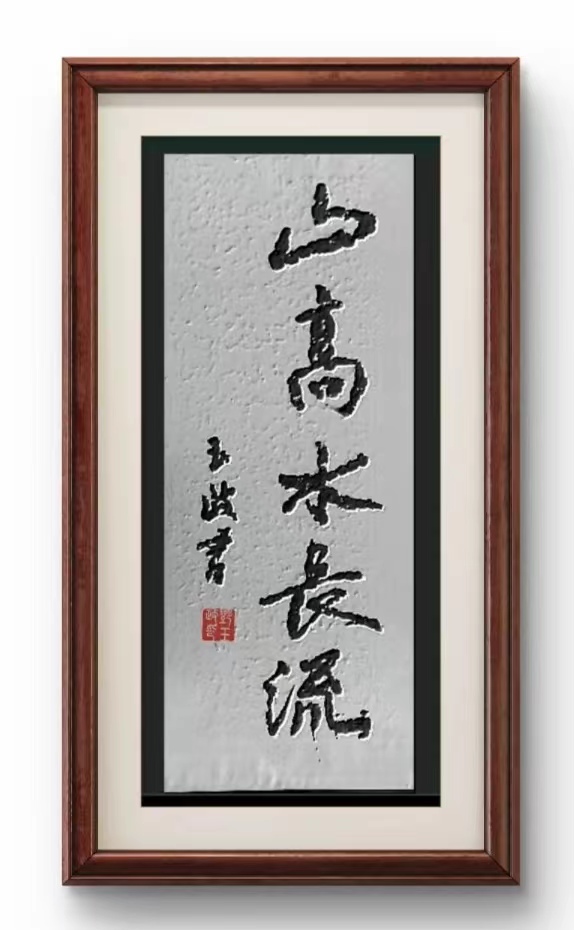 山高水長流
玉政書